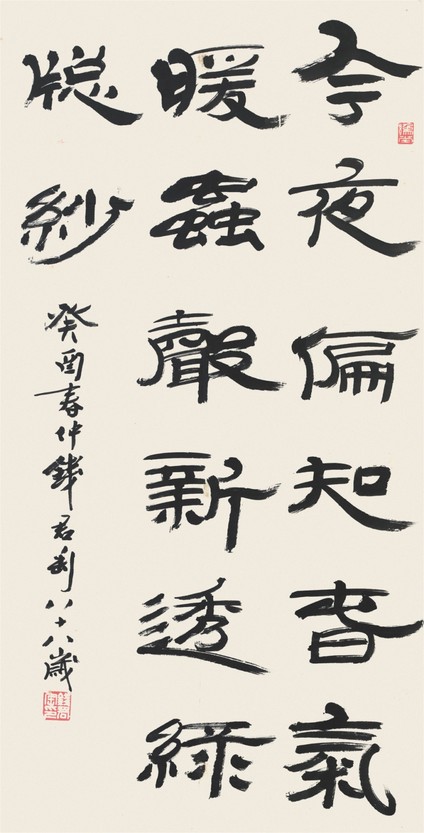 今夜偏知旾氣
暖蟲聲新透綠
牕紗
癸酉春仲錢君匋八十八歲